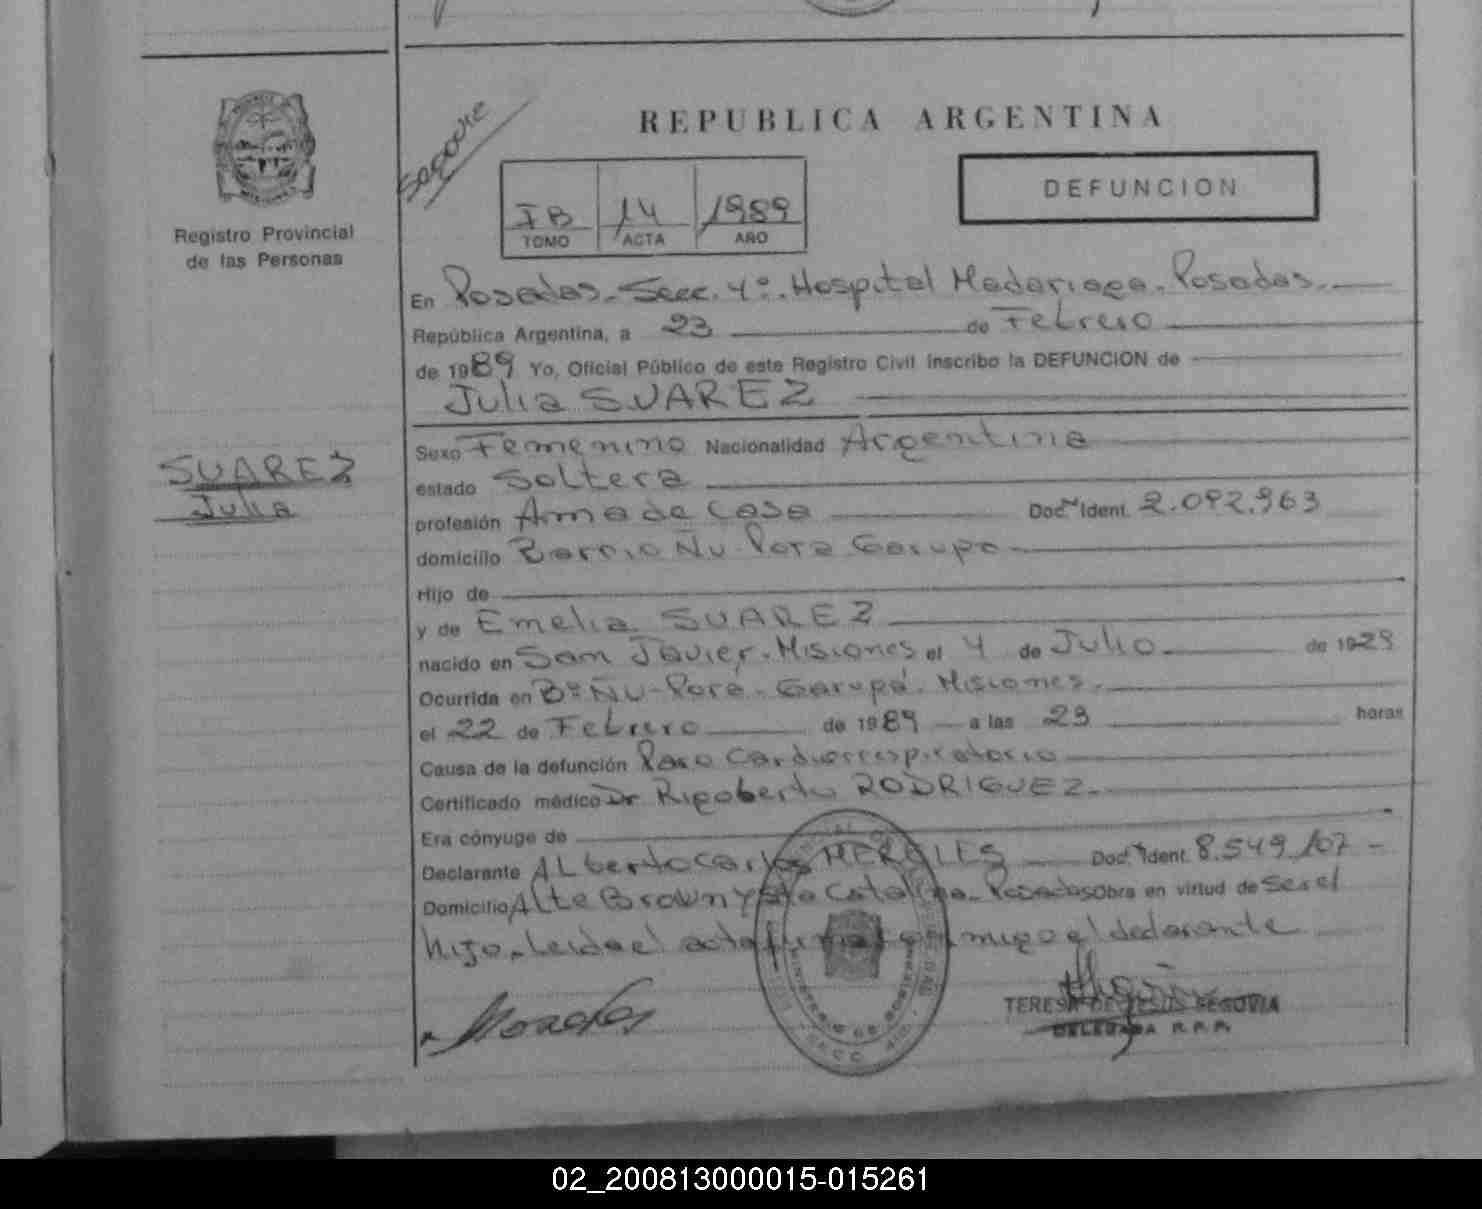 REPUBLICA ARGENTINA
DEFUNCION
Registro Provincial
de las Personas
IB 14 1989
TOMO ACTA AÑO
En Posadas. Secc. 4º. Hospital Madariaga. Posadas.
República Argentina, a 23 de Febrero
de 1989 Yo, Oficial Público de este Registro Civil inscribo la DEFUNCION de
Julia SUAREZ
SUAREZ
Julia
Sexo Femenino Nacionalidad Argentina
estado Soltera
profesión Ama de Casa Doc. Ident. 2.092.963
domicilio Barrio Ñu-Pora Garupa
Hijo de
y de Emelia SUAREZ
nacido en San Javier. Misiones el 4 de Julio de 1929
Ocurrida en Bº Ñu-Porá. Garupá. Misiones.
el 22 de Febrero de 1989 a las 23 horas
Causa de la defunción Paro Cardiorrespiratorio
Certificado médico Dr Rigoberto RODRIGUEZ.
Era cónyuge de
Declarante Alberto Carlos Doc. Ident. 8.549.107
Domicilio Alte Brown y Sta Catalina. Posadas obra en virtud de ser el
hijo. Leida el acta firma conmigo el declarante
TERESA DE JESUS SEGOVIA
DELEGADA R.P.P.
02_200813000015-015261